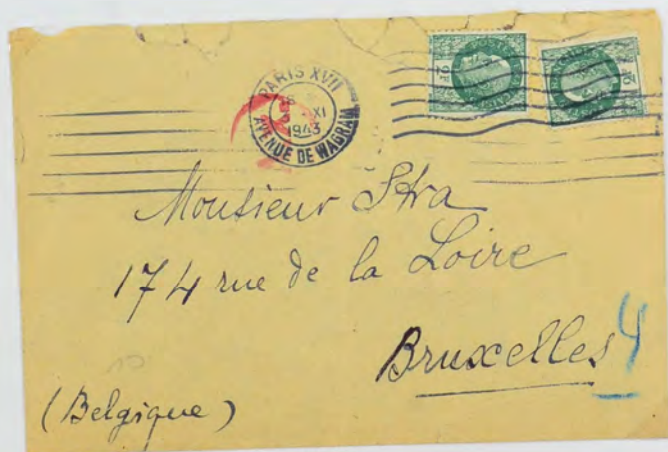 PARIS XVII
18
XI
1943
AVENUE DE WAGRAM
Monsieur Stra
174 rue de la Loire
Bruxelles 4
(Belgique)